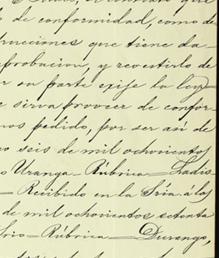 de conformidad, como de
trucciones que tiene da
probacion, y revestirlo de
su parte exije la ley
se sirva proveer de confor
mos pedido, por ser asi de
o seis de mil ochocientos
o Uranga=Rúbrica=Ladis
=Recibido en la Sría á las
de mil ochocientos setenta
Srio=Rúbrica=Durango,